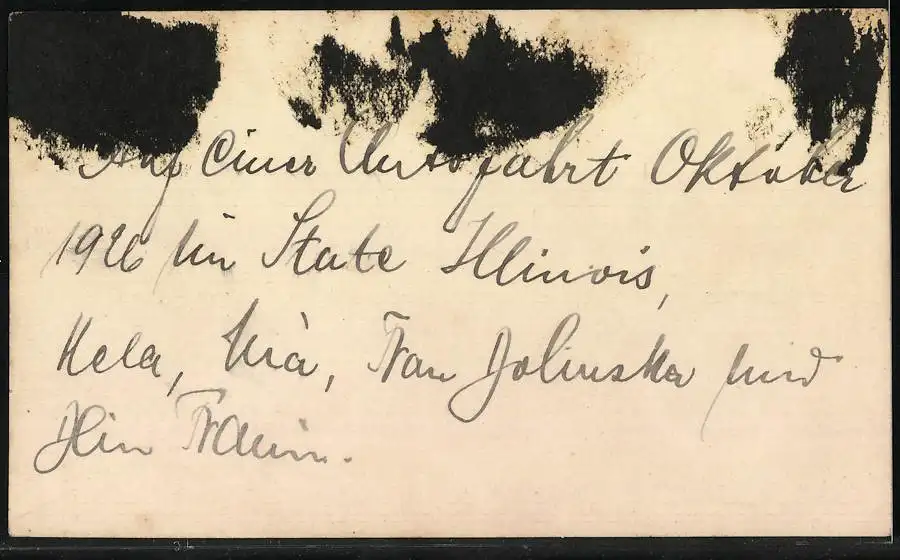 Auf einer Autofahrt Oktober
1926 im State Illinois,
Hela, Mia, Frau Dolinska und